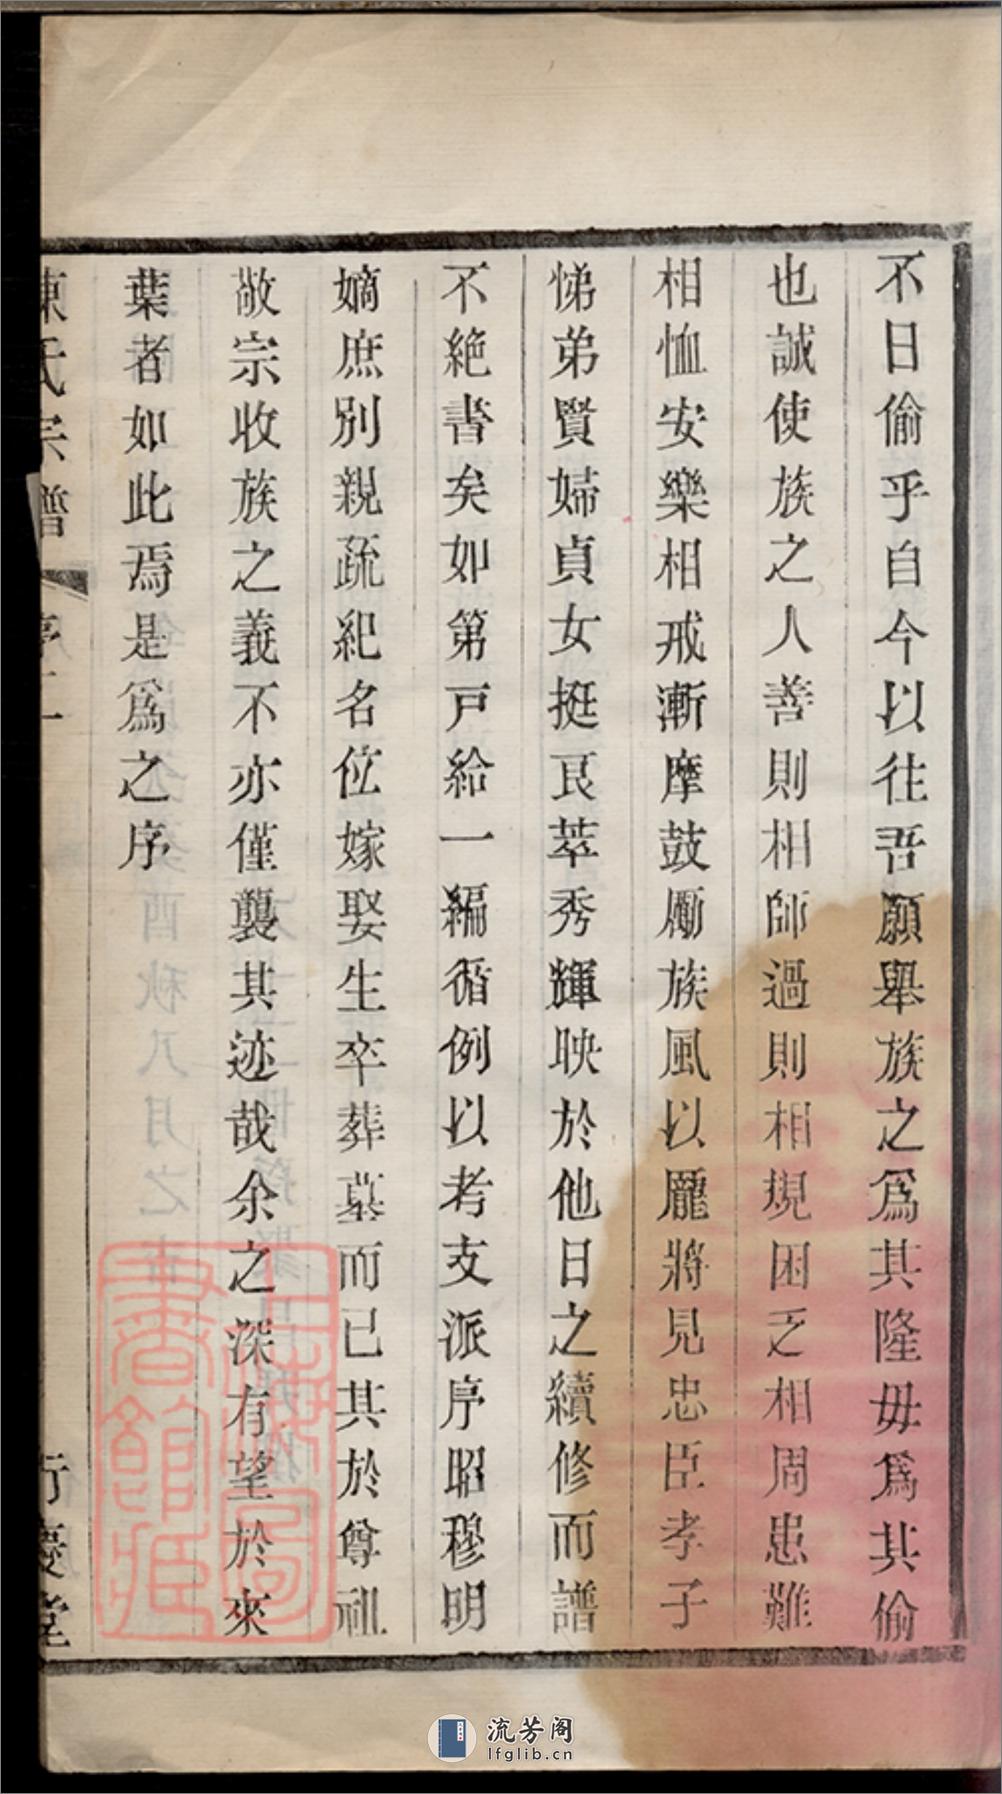 不日偷乎自今以往吾願舉族之爲其隆毋爲其偷
也誠使族之人善則相師過則相規困乏相周患難
相恤安樂相戒漸摩鼓勵族風以龐將見忠臣孝子
悌弟賢婦貞女挺良萃秀輝映於他日之續修而譜
不絶書矣如第戸給一編循例以考支派序昭穆明
嫡庶別親疏紀名位嫁娶生卒葬墓而已其於尊祖
敬宗收族之義不亦僅襲其迹哉余之深有望於來
葉者如此焉是爲之序
陳氏宗譜 序二 行慶堂
上海圖書館藏
流芳阁
lfglib.cn